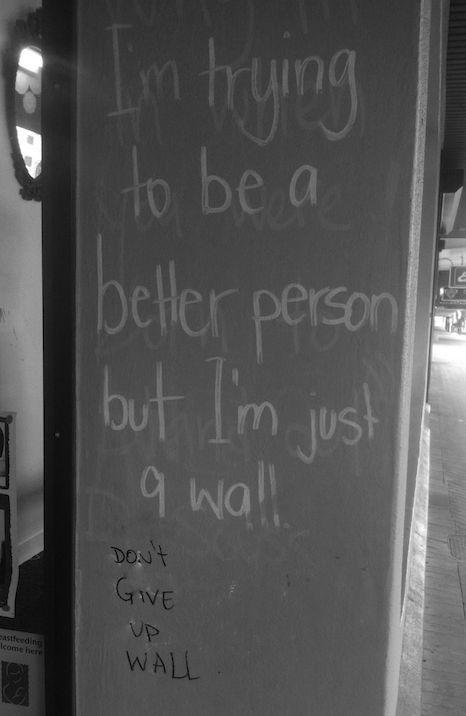 I'm trying
to be a
better person
but I'm just
a wall.
DON'T
GIVE
UP
WALL.
eastfeeding
lcome here